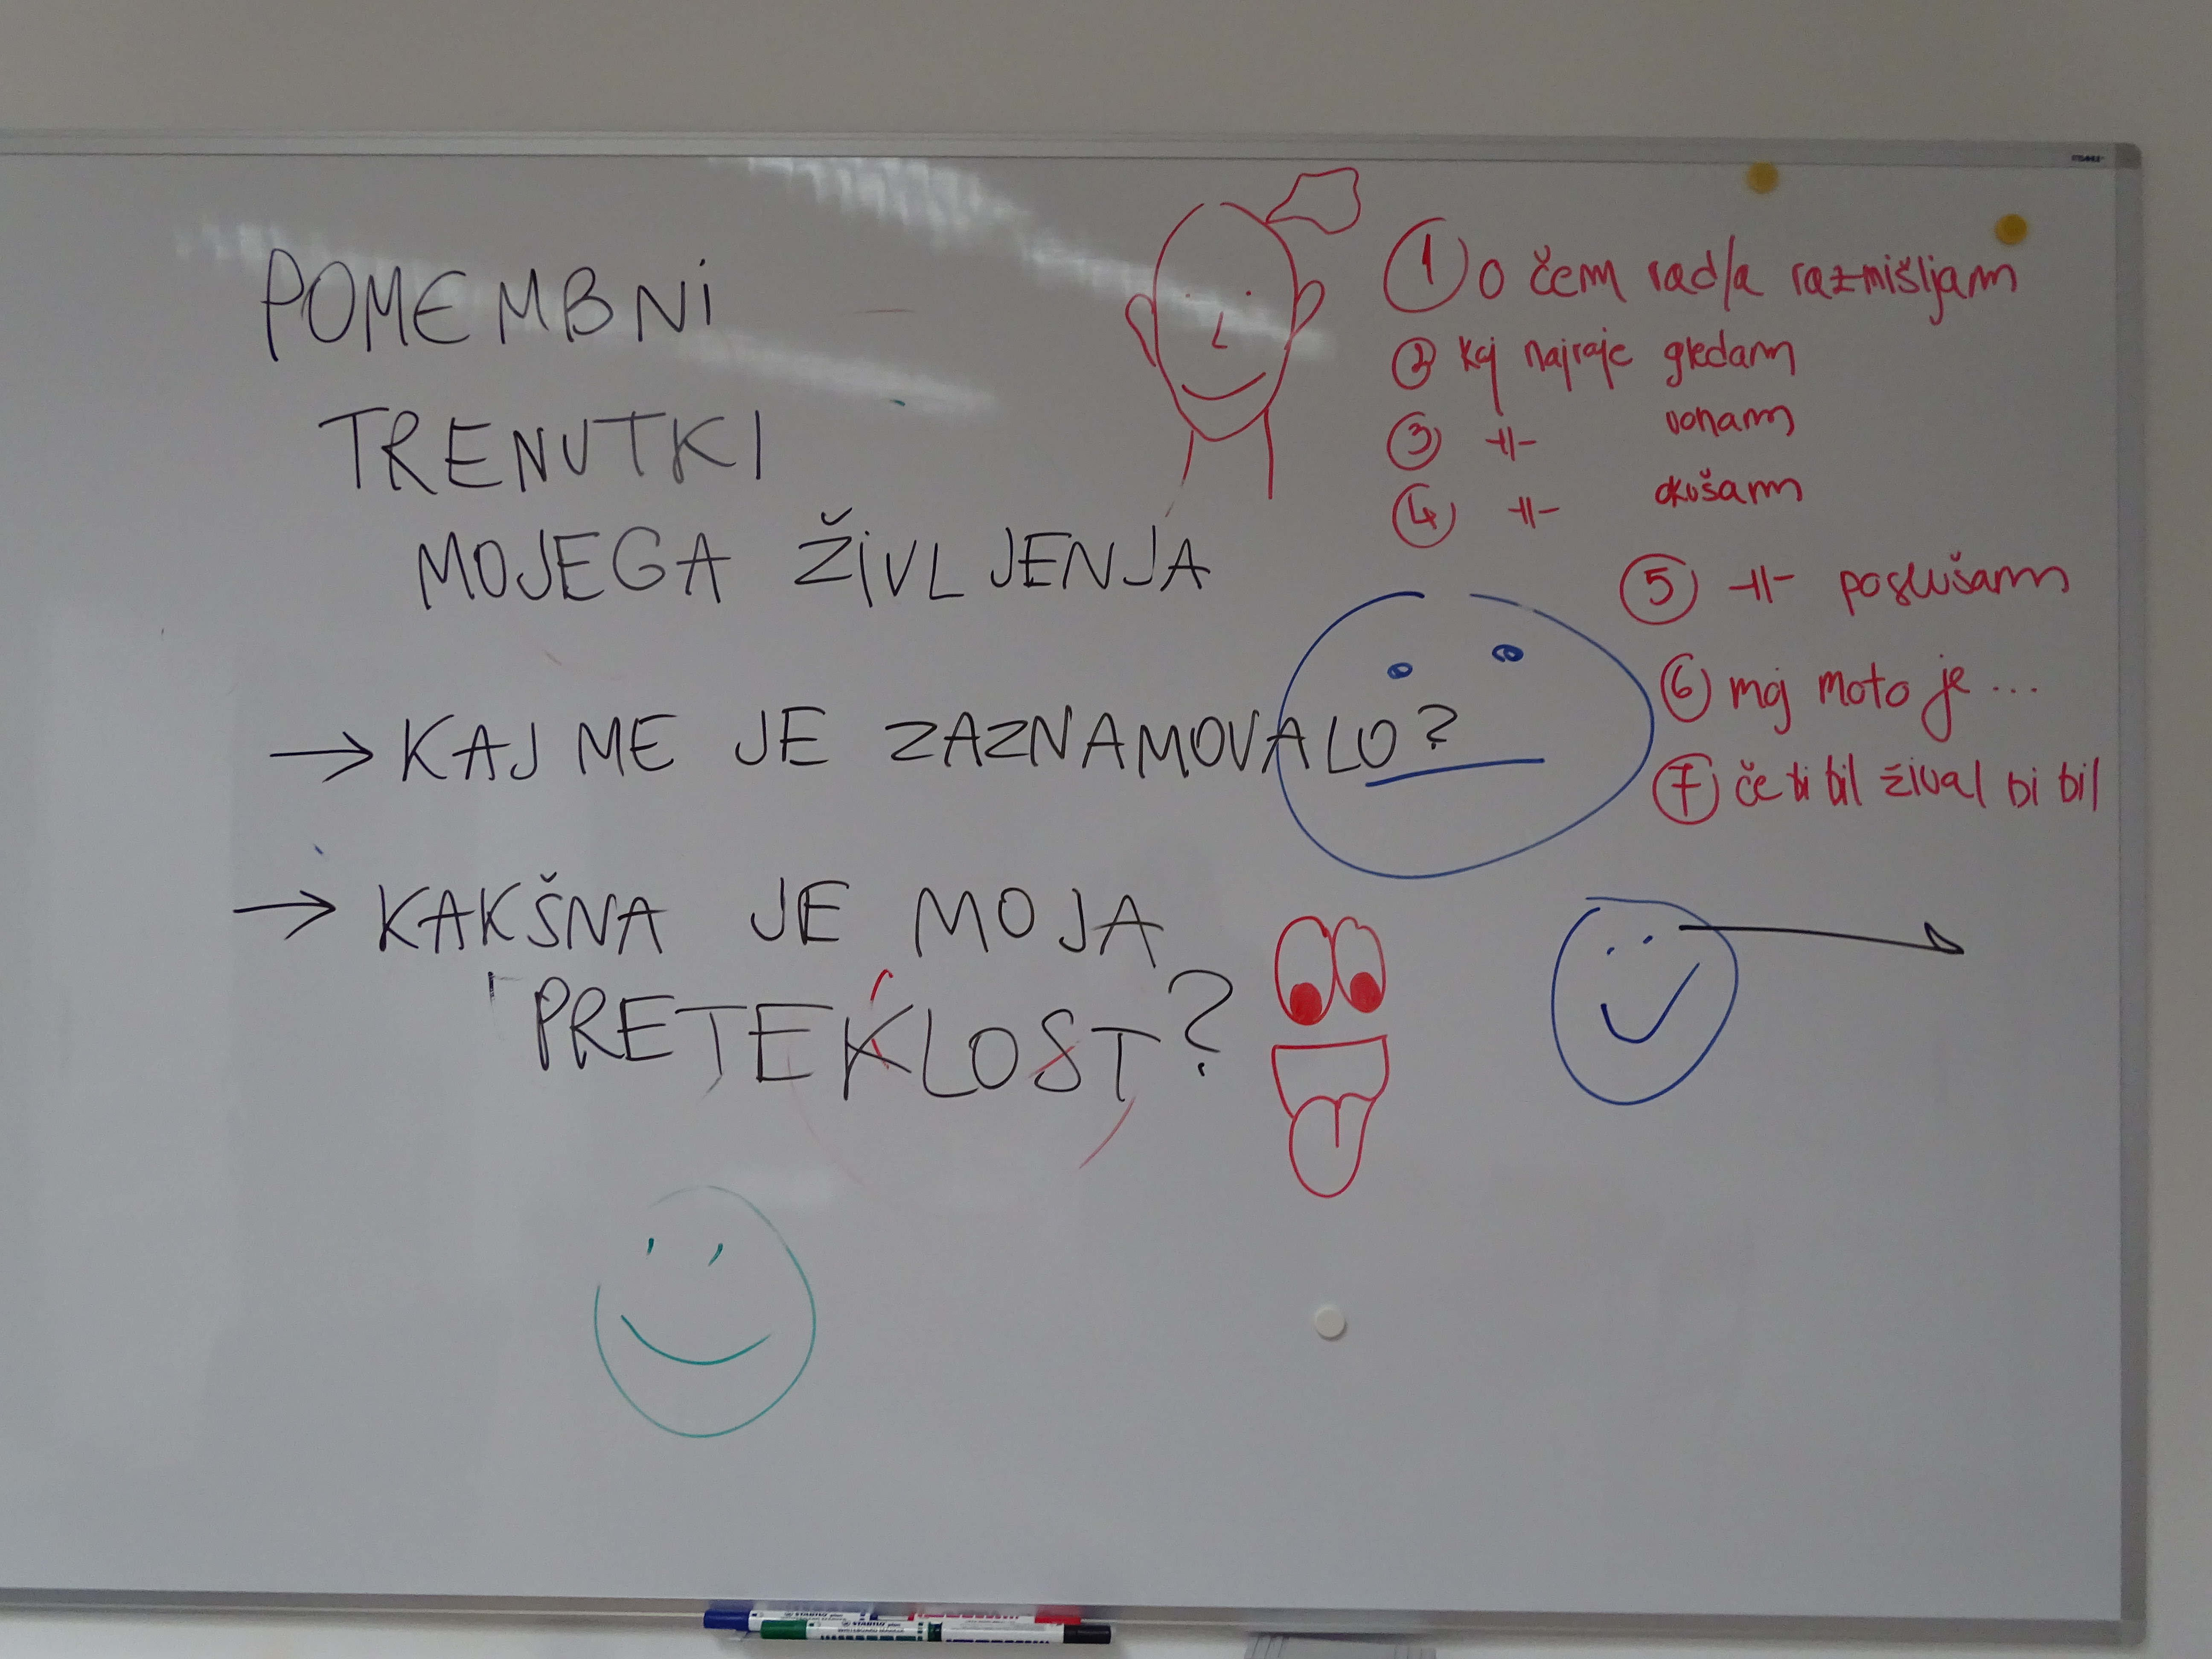 POMEMBNI
TRENUTKI
MOJEGA ŽIVLJENJA
→ KAJ ME JE ZAZNAMOVALO?
→ KAKŠNA JE MOJA
PRETEKLOST?
1 O čem rad/a razmišljam
2 kaj najraje gledam
3 -||- vonam
4 -||- okušam
5 -||- poslušam
6 moj moto je ...
7 če bi bil žival bi bil